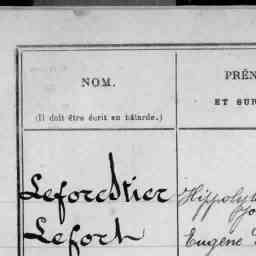 NOM.
(Il doit être écrit en bâtarde.)
PRÉN
ET SUR
Leforestier Hippolyt
Lefort Eugène